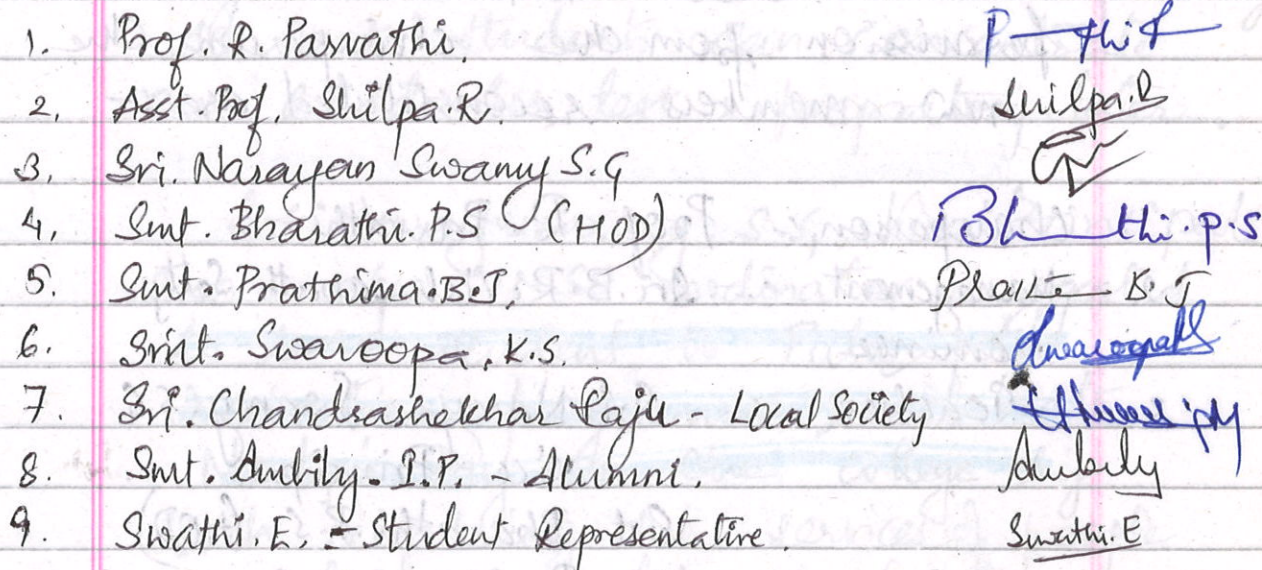 1. Prof. R. Parvathi.
2. Asst. Prof. Shilpa.R. Shilpa.R
3. Sri. Narayan Swamy S.G
4. Smt. Bharathi. P.S (HOD) Bh thi.P.S
5. Smt. Prathima.B.J.
6. Smt. Swaroopa. K.S.
7. Sri. Chandrashekhar Raju - Local Society
8. Smt. Ambily. I.P. - Alumni. Ambily
9. Swathi. E. - Student Representative. Swathi.E